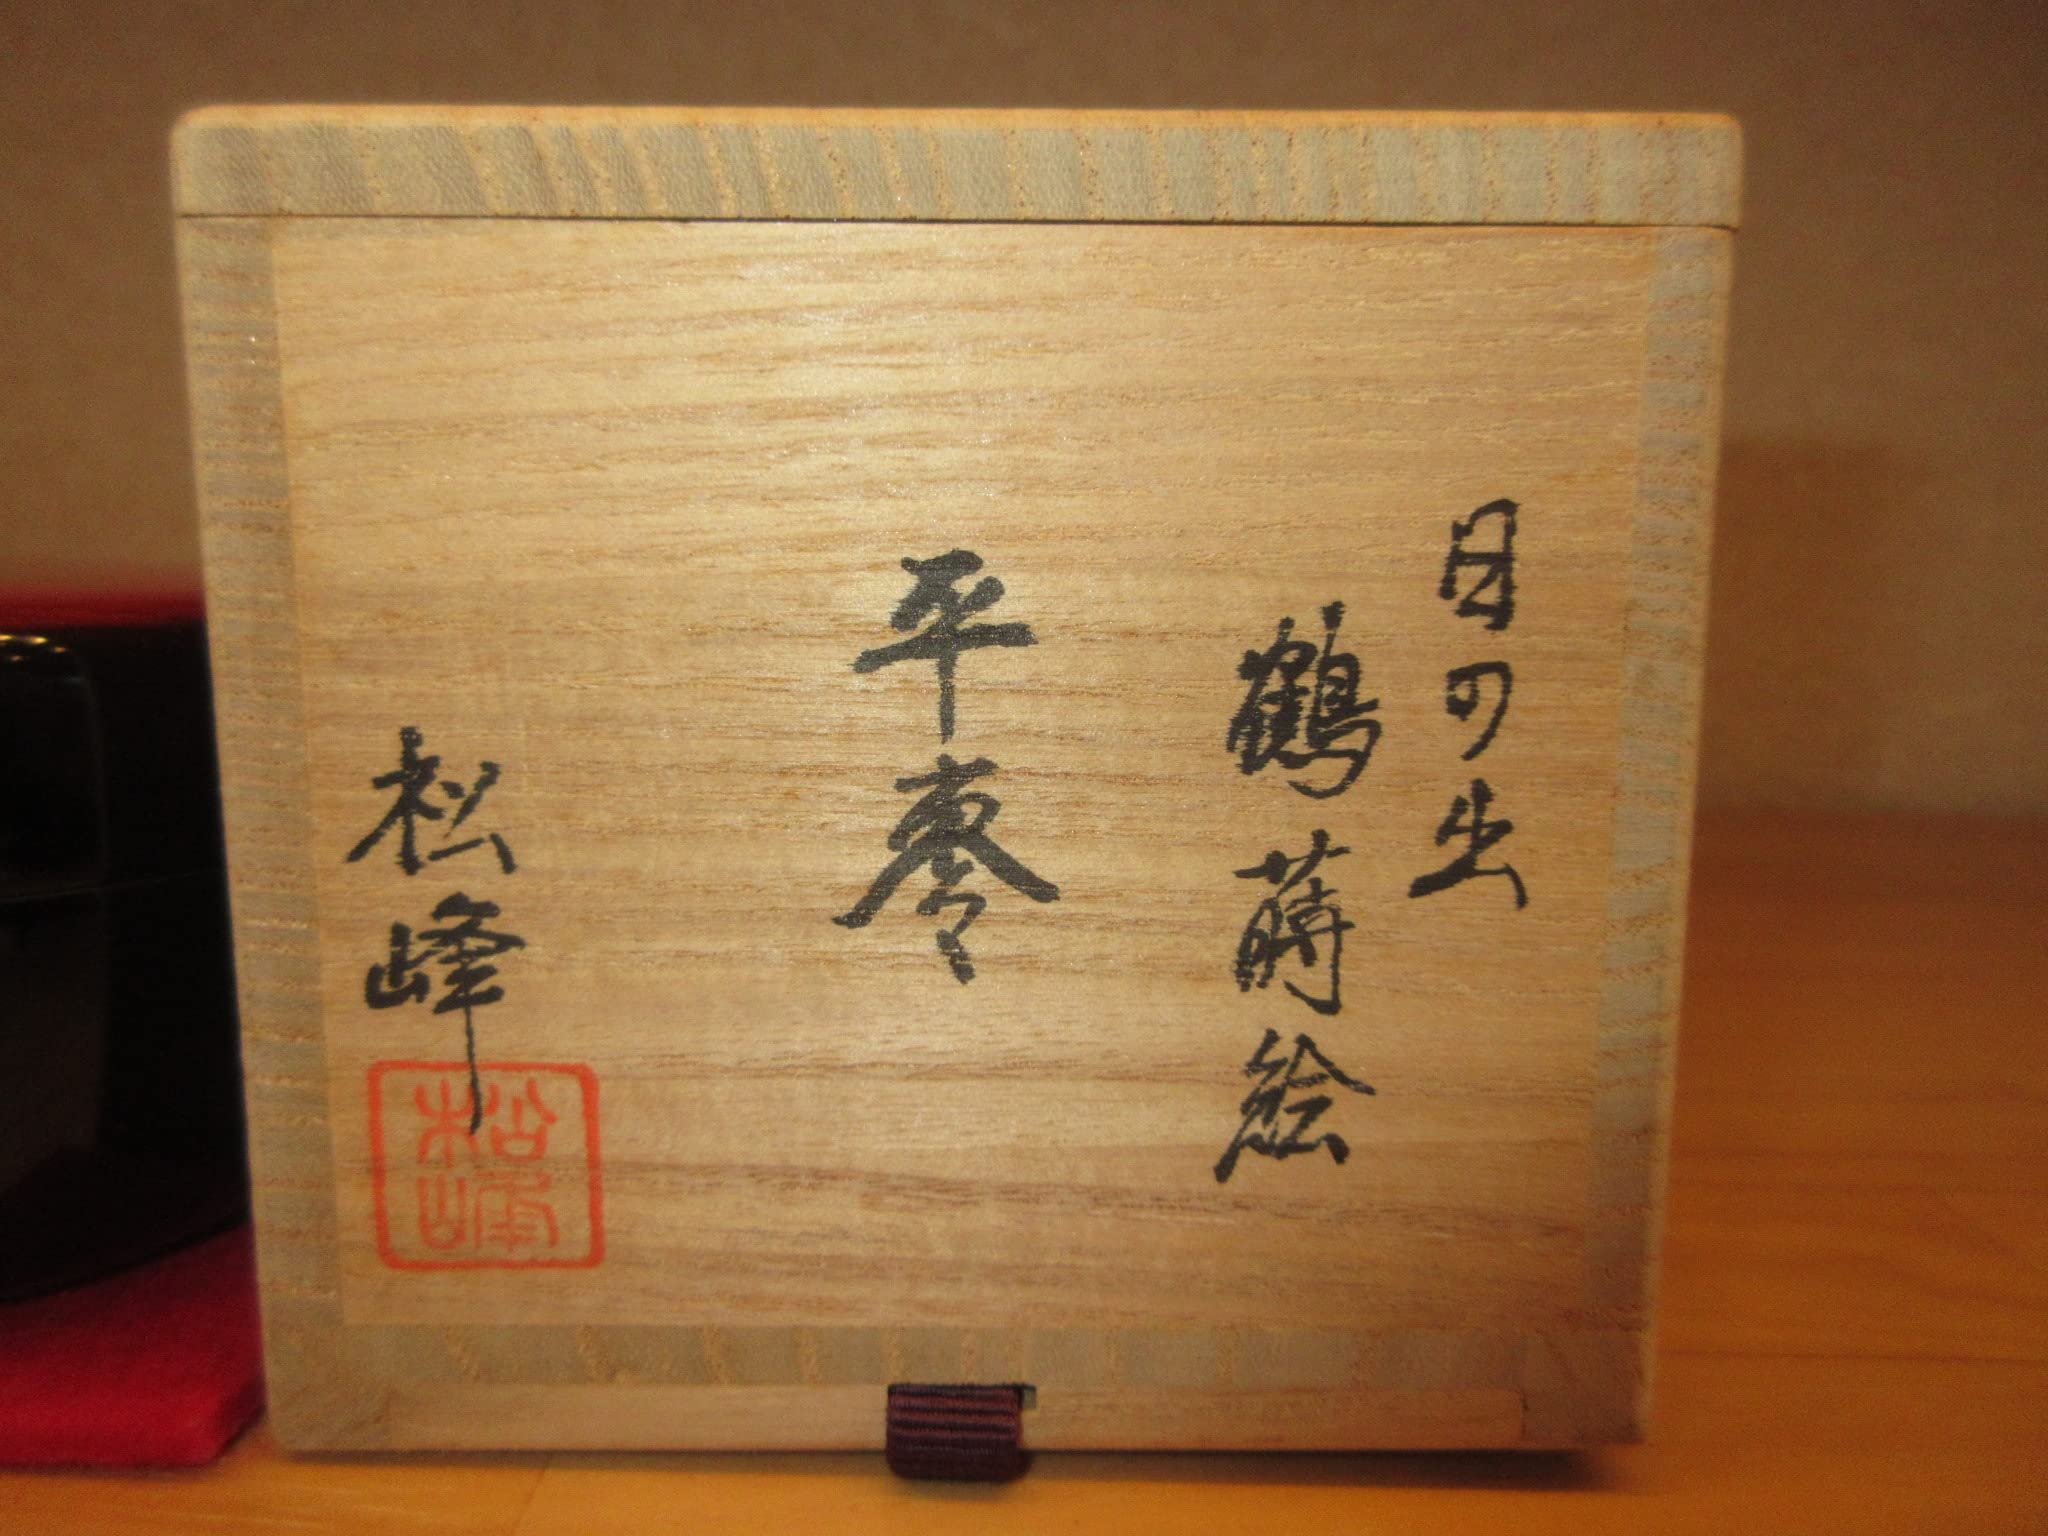 日の出
鶴蒔絵
平棗
松峰
松峰